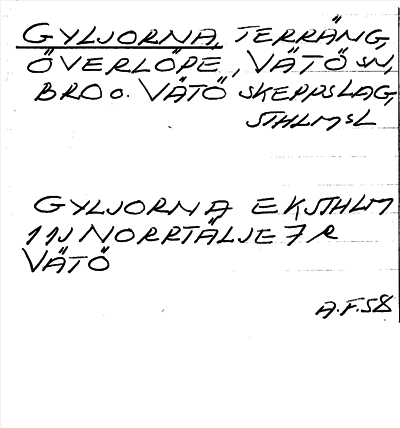 GYLJORNA, TERRÄNG,
ÖVERLÖPE, VÄTÖ SN,
BRO O. VÄTÖ SKEPPSLAG,
STHLMSL
GYLJORNA EK STHLM
11J NORRTÄLJE 7 R
VÄTÖ
A.F.58